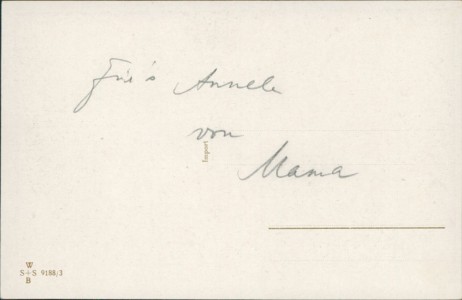 Für's Annele
von
Import
Mama
W
S+S 9188/3
B